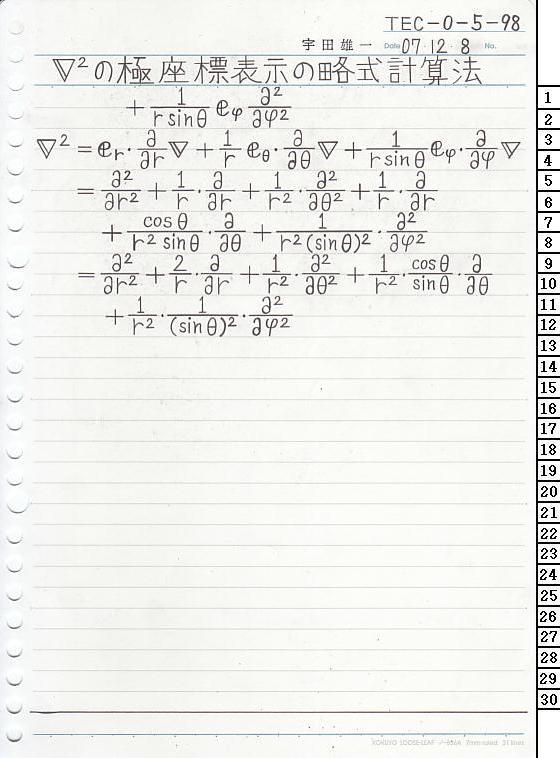 TEC-0-5-98
宇田雄一 Date 07 12 8 No.
∇²の極座標表示の略式計算法
+ 1/(r sinθ) e_φ ∂²/∂φ²
∇² = e_r·∂/∂r ∇ + 1/r e_θ·∂/∂θ ∇ + 1/(r sinθ) e_φ·∂/∂φ ∇
= ∂²/∂r² + 1/r·∂/∂r + 1/r²·∂²/∂θ² + 1/r·∂/∂r
+ cosθ/(r² sinθ)·∂/∂θ + 1/(r²(sinθ)²)·∂²/∂φ²
= ∂²/∂r² + 2/r·∂/∂r + 1/r²·∂²/∂θ² + 1/r²·cosθ/sinθ·∂/∂θ
+ 1/r²·1/(sinθ)²·∂²/∂φ²
1
2
3
4
5
6
7
8
9
10
11
12
13
14
15
16
17
18
19
20
21
22
23
24
25
26
27
28
29
30
KOKUYO LOOSE-LEAF ノ-836A 7mm ruled 31 lines